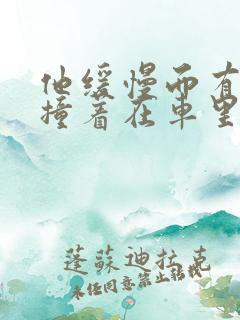 他缓慢而有
撞着在车里
蓬蘇迪拉克
未经同意禁止转载